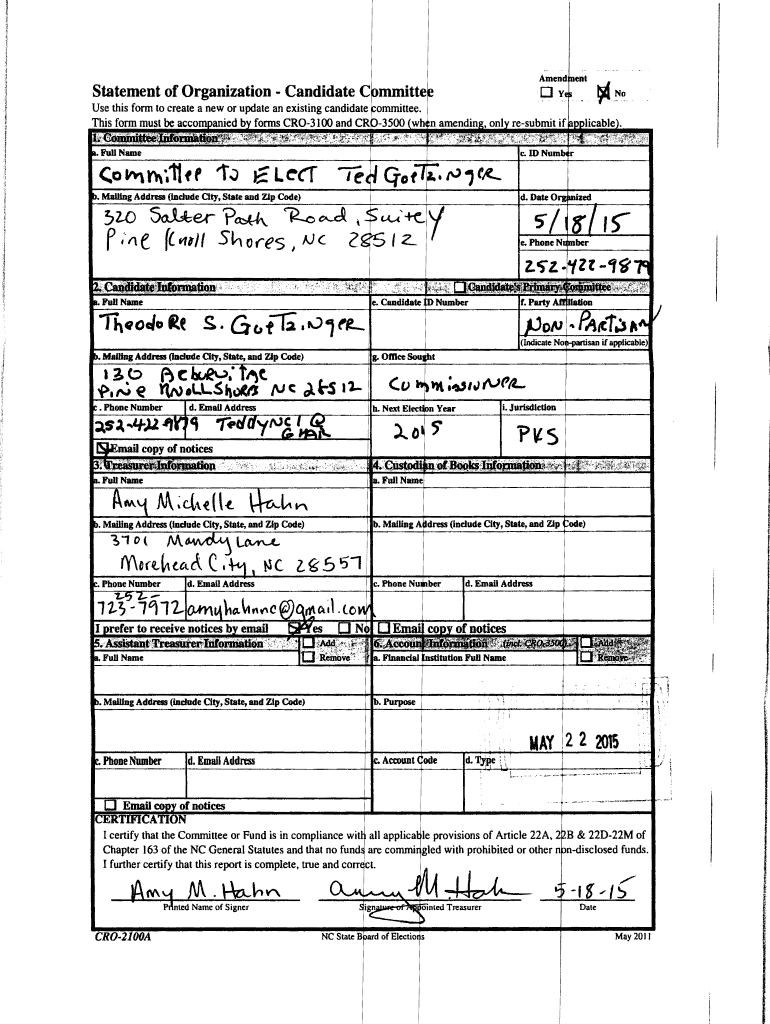 Amendment
Statement of Organization - Candidate Committee
☐ Yes ☒ No
Use this form to create a new or update an existing candidate committee.
This form must be accompanied by forms CRO-3100 and CRO-3500 (when amending, only re-submit if applicable).
1. Committee Information
a. Full Name c. ID Number
Committee To Elect Ted Goetzinger
b. Mailing Address (include City, State and Zip Code) d. Date Organized
320 Salter Path Road, Suite Y 5/18/15
Pine Knoll Shores, NC 28512
e. Phone Number
252-422-9879
2. Candidate Information ☐ Candidate's Primary Committee
a. Full Name e. Candidate ID Number f. Party Affiliation
Theodore S. Goetzinger Non-Partisan
(Indicate Non-partisan if applicable)
b. Mailing Address (include City, State, and Zip Code) g. Office Sought
130
Pine Knoll Shores NC 28512 Commissioner
c. Phone Number d. Email Address h. Next Election Year i. Jurisdiction
252-422-9879 TeddyNC1@ 2015 PKS
GMAIL
☒ Email copy of notices
3. Treasurer Information 4. Custodian of Books Information
a. Full Name a. Full Name
Amy Michelle Hahn
b. Mailing Address (include City, State, and Zip Code) b. Mailing Address (include City, State, and Zip Code)
3701 Mandy Lane
Morehead City, NC 28557
c. Phone Number d. Email Address c. Phone Number d. Email Address
252-
723-7972 amyhahnnc@gmail.com
I prefer to receive notices by email ☒ Yes ☐ No ☐ Email copy of notices
5. Assistant Treasurer Information ☐ Add 6. Account Information (incl. CRO-3500) ☐ Add
a. Full Name ☐ Remove a. Financial Institution Full Name ☐ Remove
b. Mailing Address (include City, State, and Zip Code) b. Purpose
MAY 22 2015
c. Phone Number d. Email Address c. Account Code d. Type
☐ Email copy of notices
CERTIFICATION
I certify that the Committee or Fund is in compliance with all applicable provisions of Article 22A, 22B & 22D-22M of
Chapter 163 of the NC General Statutes and that no funds are commingled with prohibited or other non-disclosed funds.
I further certify that this report is complete, true and correct.
Amy M. Hahn Amy M. Hahn 5-18-15
Printed Name of Signer Signature of Appointed Treasurer Date
CRO-2100A NC State Board of Elections May 2011